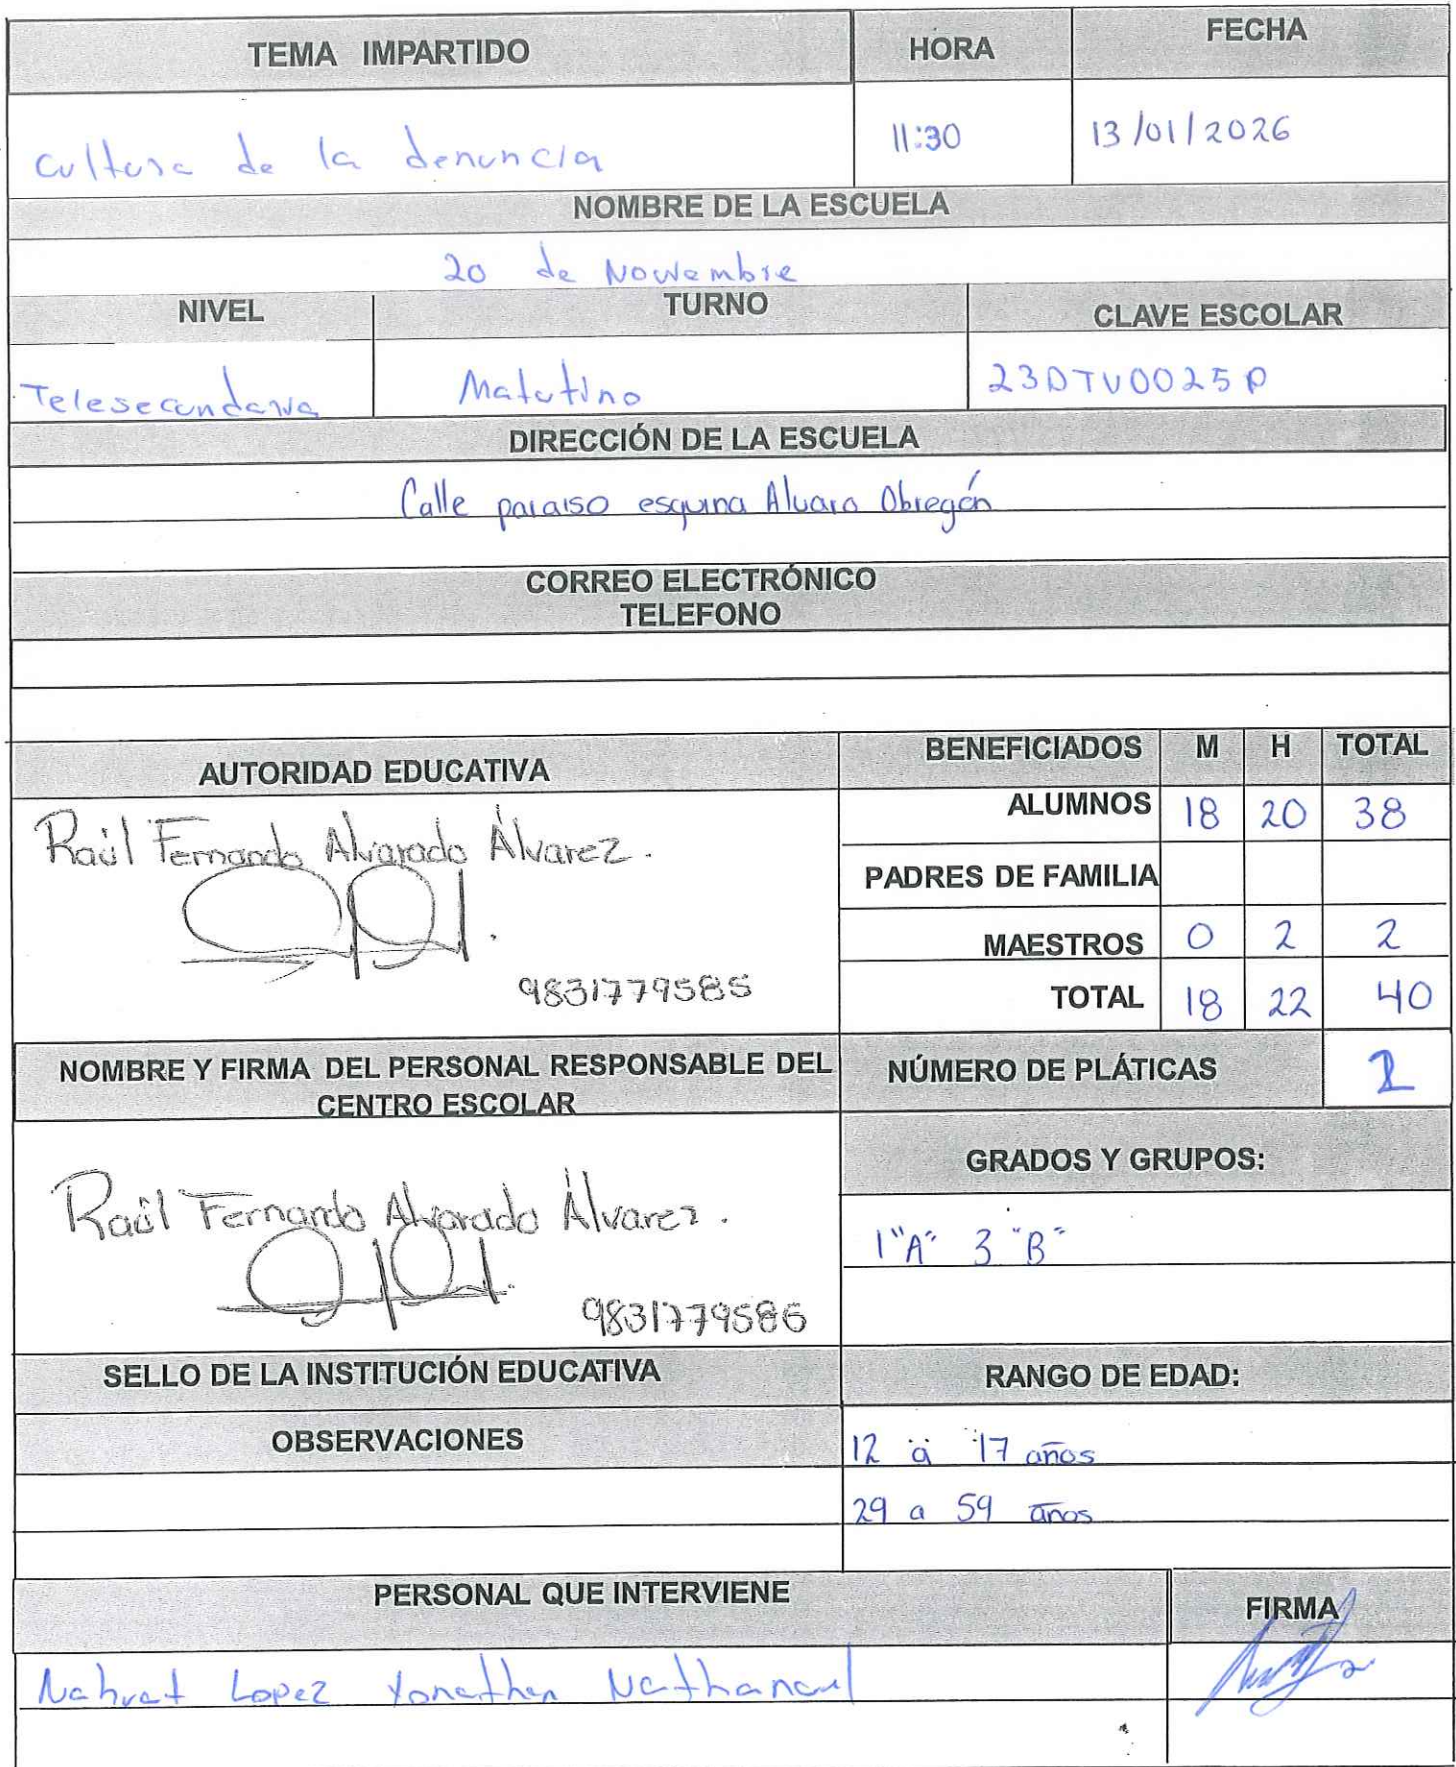 TEMA IMPARTIDO HORA FECHA
Cultura de la denuncia 11:30 13/01/2026
NOMBRE DE LA ESCUELA
20 de Noviembre
NIVEL TURNO CLAVE ESCOLAR
Telesecundaria Matutino 23DTV0025P
DIRECCIÓN DE LA ESCUELA
Calle paraiso esquina Alvaro Obregón
CORREO ELECTRÓNICO
TELEFONO
AUTORIDAD EDUCATIVA
Raúl Fernando Alvarado Álvarez.
9831779585
BENEFICIADOS M H TOTAL
ALUMNOS 18 20 38
PADRES DE FAMILIA
MAESTROS 0 2 2
TOTAL 18 22 40
NOMBRE Y FIRMA DEL PERSONAL RESPONSABLE DEL
CENTRO ESCOLAR
NÚMERO DE PLÁTICAS 1
Raúl Fernando Alvarado Álvarez.
9831779586
GRADOS Y GRUPOS:
1"A" 3 "B"
SELLO DE LA INSTITUCIÓN EDUCATIVA
RANGO DE EDAD:
OBSERVACIONES
12 a 17 años
29 a 59 años
PERSONAL QUE INTERVIENE FIRMA
Nahuat Lopez Yonathan Nathanael